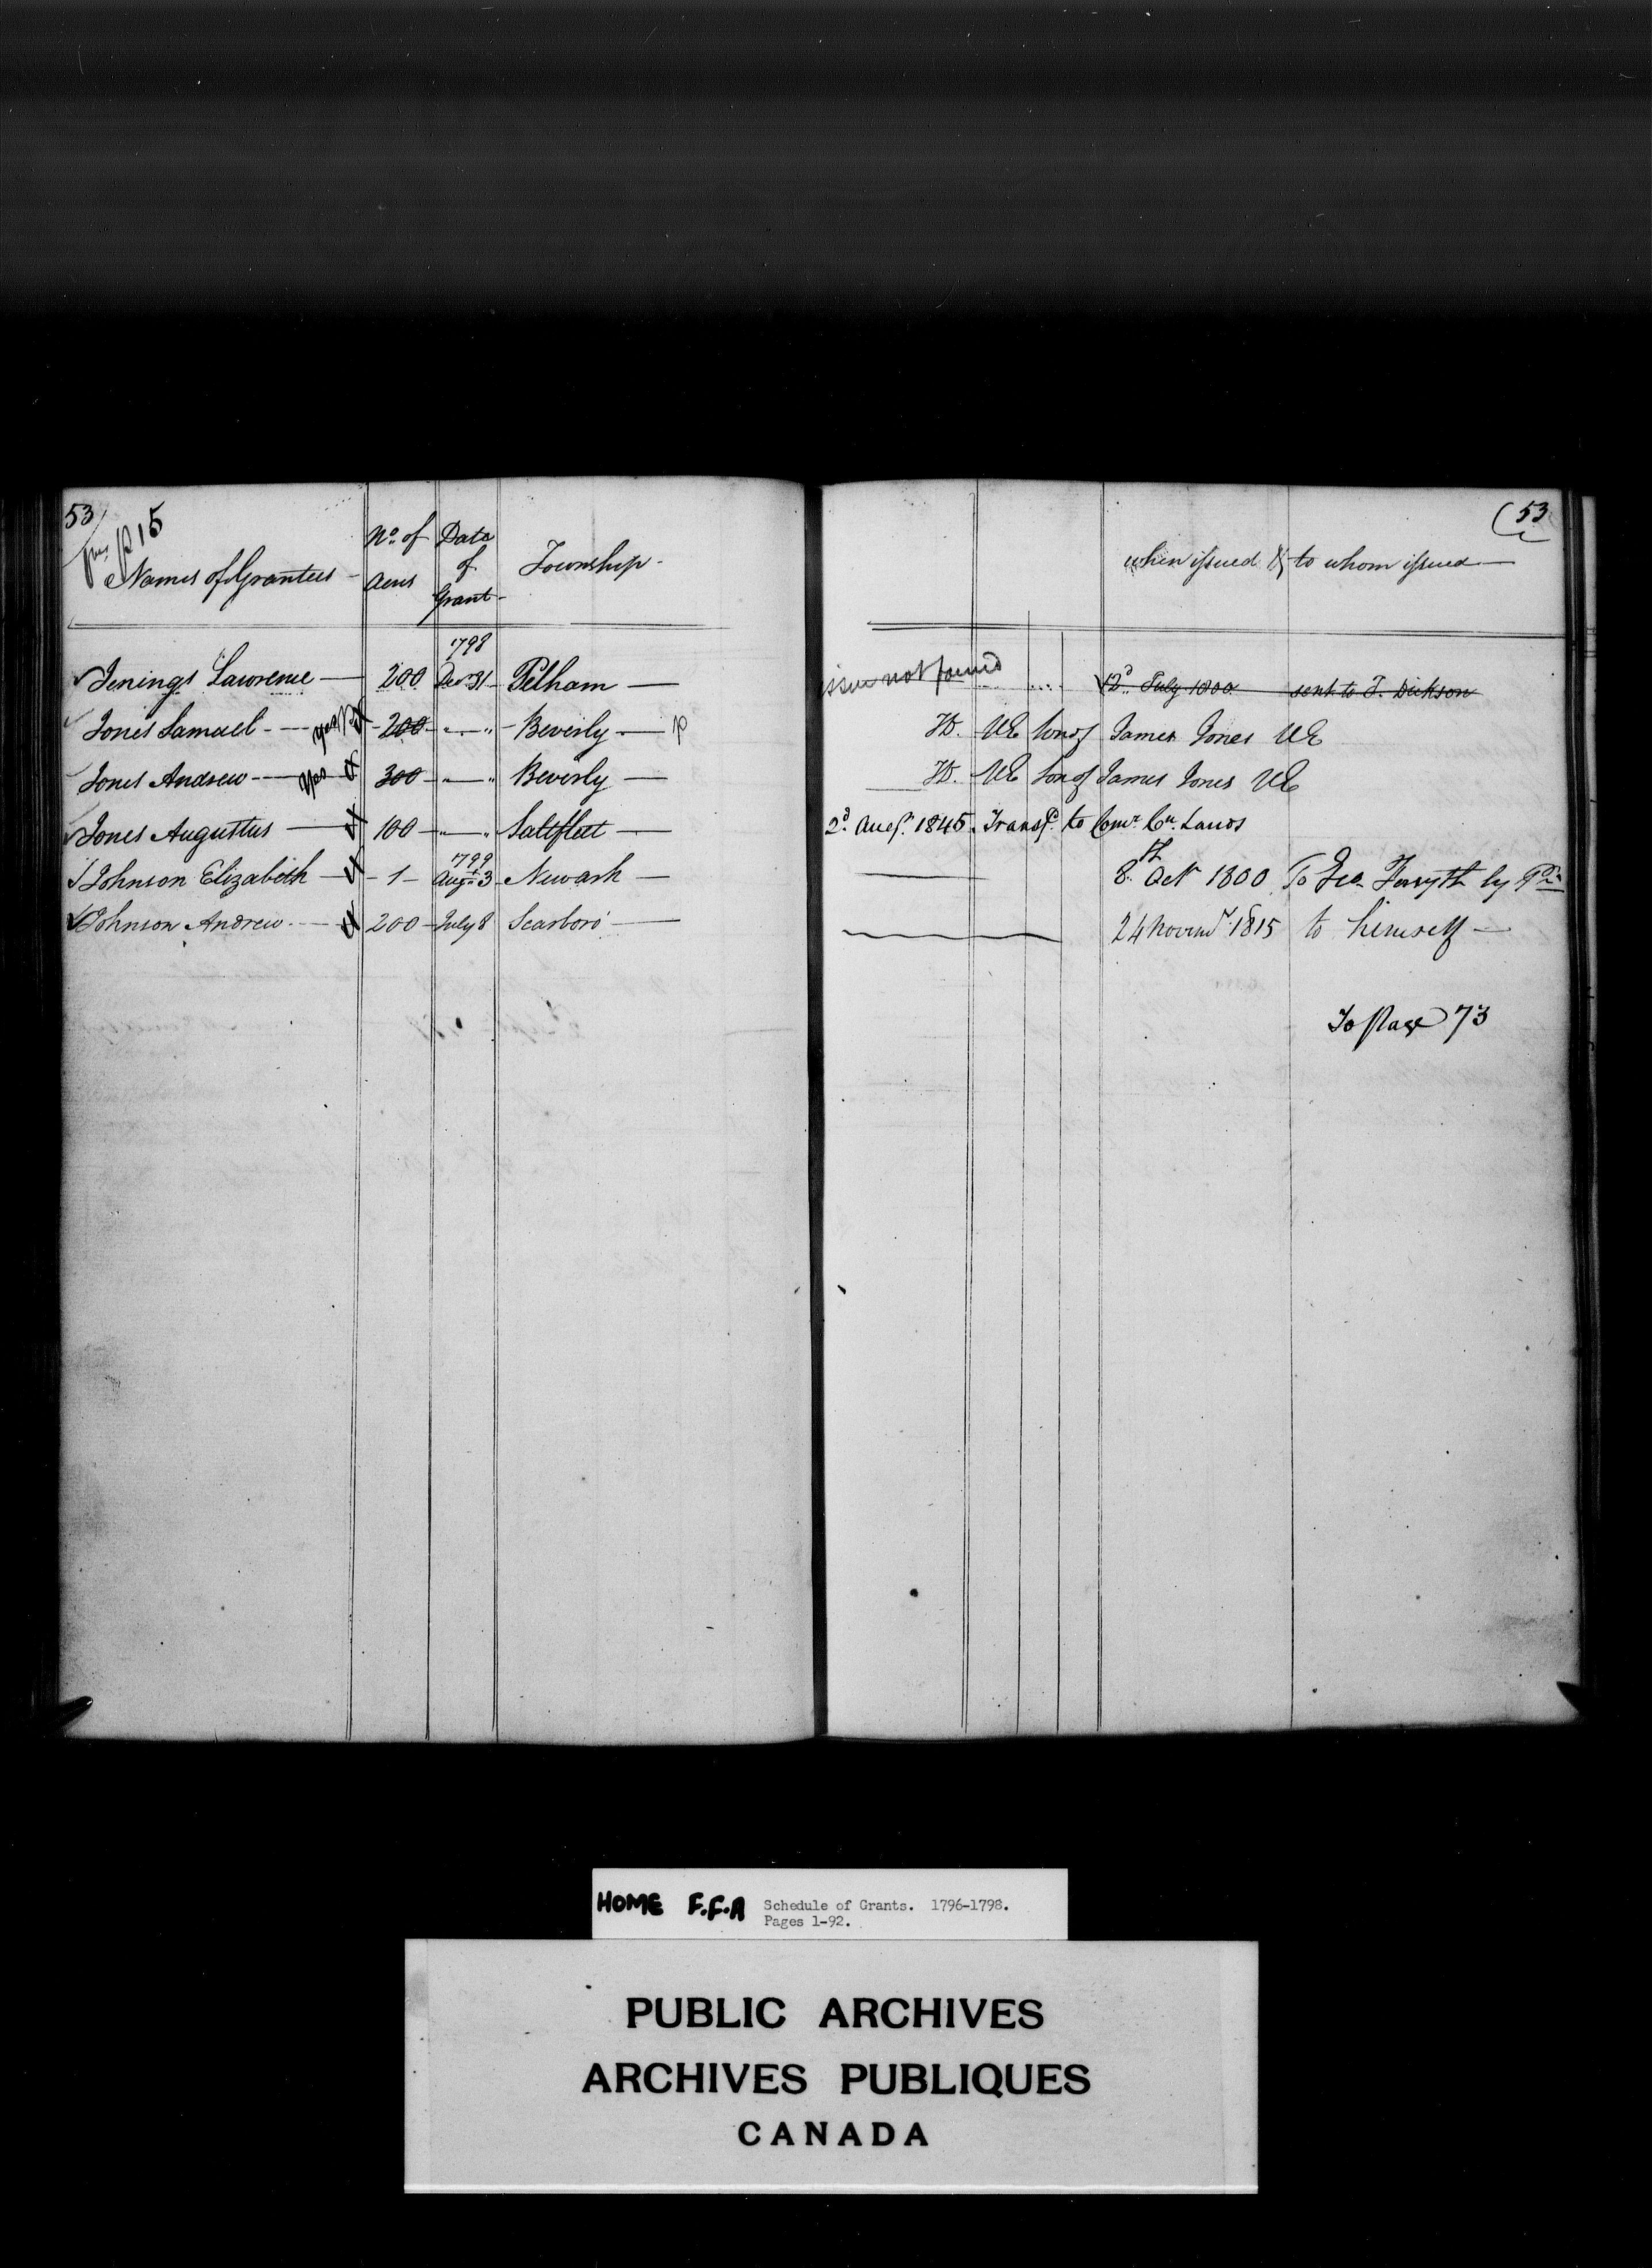 53
p 15
Names of Grantees
No. of Acres
Date of Grant
Township
1798
Jenings Lawrence 200 Decr 31 Pelham
Jones Samuel - yes 200 - " Beverly - p
Jones Andrew - yes 300 - " Beverly
Jones Augustus 100 - " Saltfleet
1799
Johnson Elizabeth - 1 - Augt 3 Newark
Johnson Andrew 200 July 8 Scarboro
53
when issued & to whom issued
issue not found 12d July 1800 sent to T. Dickson
UE Son of James Jones UE
UE Son of James Jones UE
2d Augt. 1845. Transfd. to Comr. Cn. Lands
8th Octr 1800 To Geo. Forsyth by
24 Novemr 1815 to himself
To Page 73
HOME F.F.A Schedule of Grants. 1796-1798.
Pages 1-92.
PUBLIC ARCHIVES
ARCHIVES PUBLIQUES
CANADA